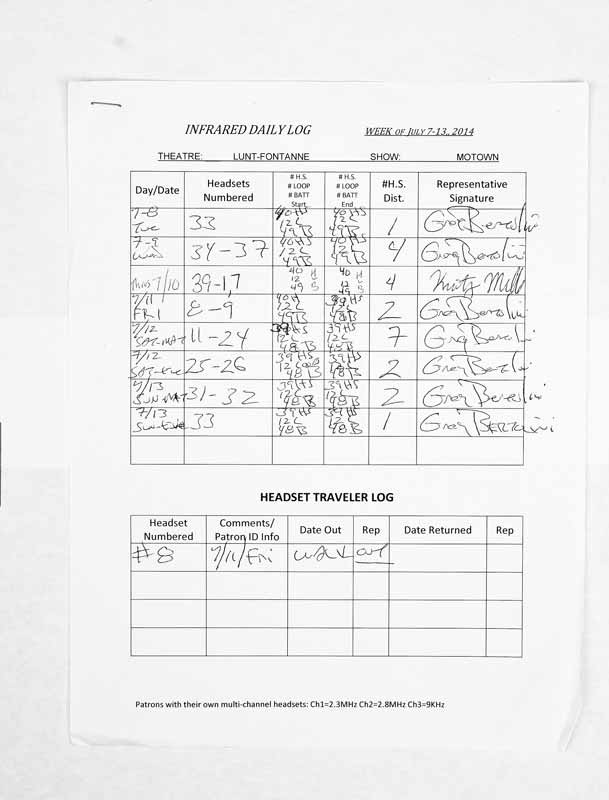 INFRARED DAILY LOG WEEK OF JULY 7-13, 2014
THEATRE: LUNT-FONTANNE SHOW: MOTOWN
Day/Date Headsets Numbered # H.S. # LOOP # BATT Start # H.S. # LOOP # BATT End #H.S. Dist. Representative Signature
7-8 Tue 33 40HS 12L 49B 40HS 12L 49B 1 Greg
7-9 Wed 34-37 40HS 12L 49B 40HS 12L 49B 4 Greg
Thurs 7/10 39-1,7 40 H 12 L 49 B 40 H 12 L 49 B 4
7/11 FRI 8-9 40H 12L 49B 39HS 12L 48B 2 Greg
7/12 SAT-MAT 11-24 39HS 12L 48B 39HS 12L 48B 7 Greg
7/12 SAT-Eve 25-26 39HS 12 Loops 48B 39HS 12L 48B 2 Greg
7/13 SUN MAT 31-32 39HS 12L 48B 39HS 12L 48B 2 Greg
7/13 Sun-Eve 33 39HS 12L 48B 39HS 12L 48B 1 Greg
HEADSET TRAVELER LOG
Headset Numbered Comments/ Patron ID Info Date Out Rep Date Returned Rep
#8 7/11/Fri WALK out
Patrons with their own multi-channel headsets: Ch1=2.3MHz Ch2=2.8MHz Ch3=9KHz